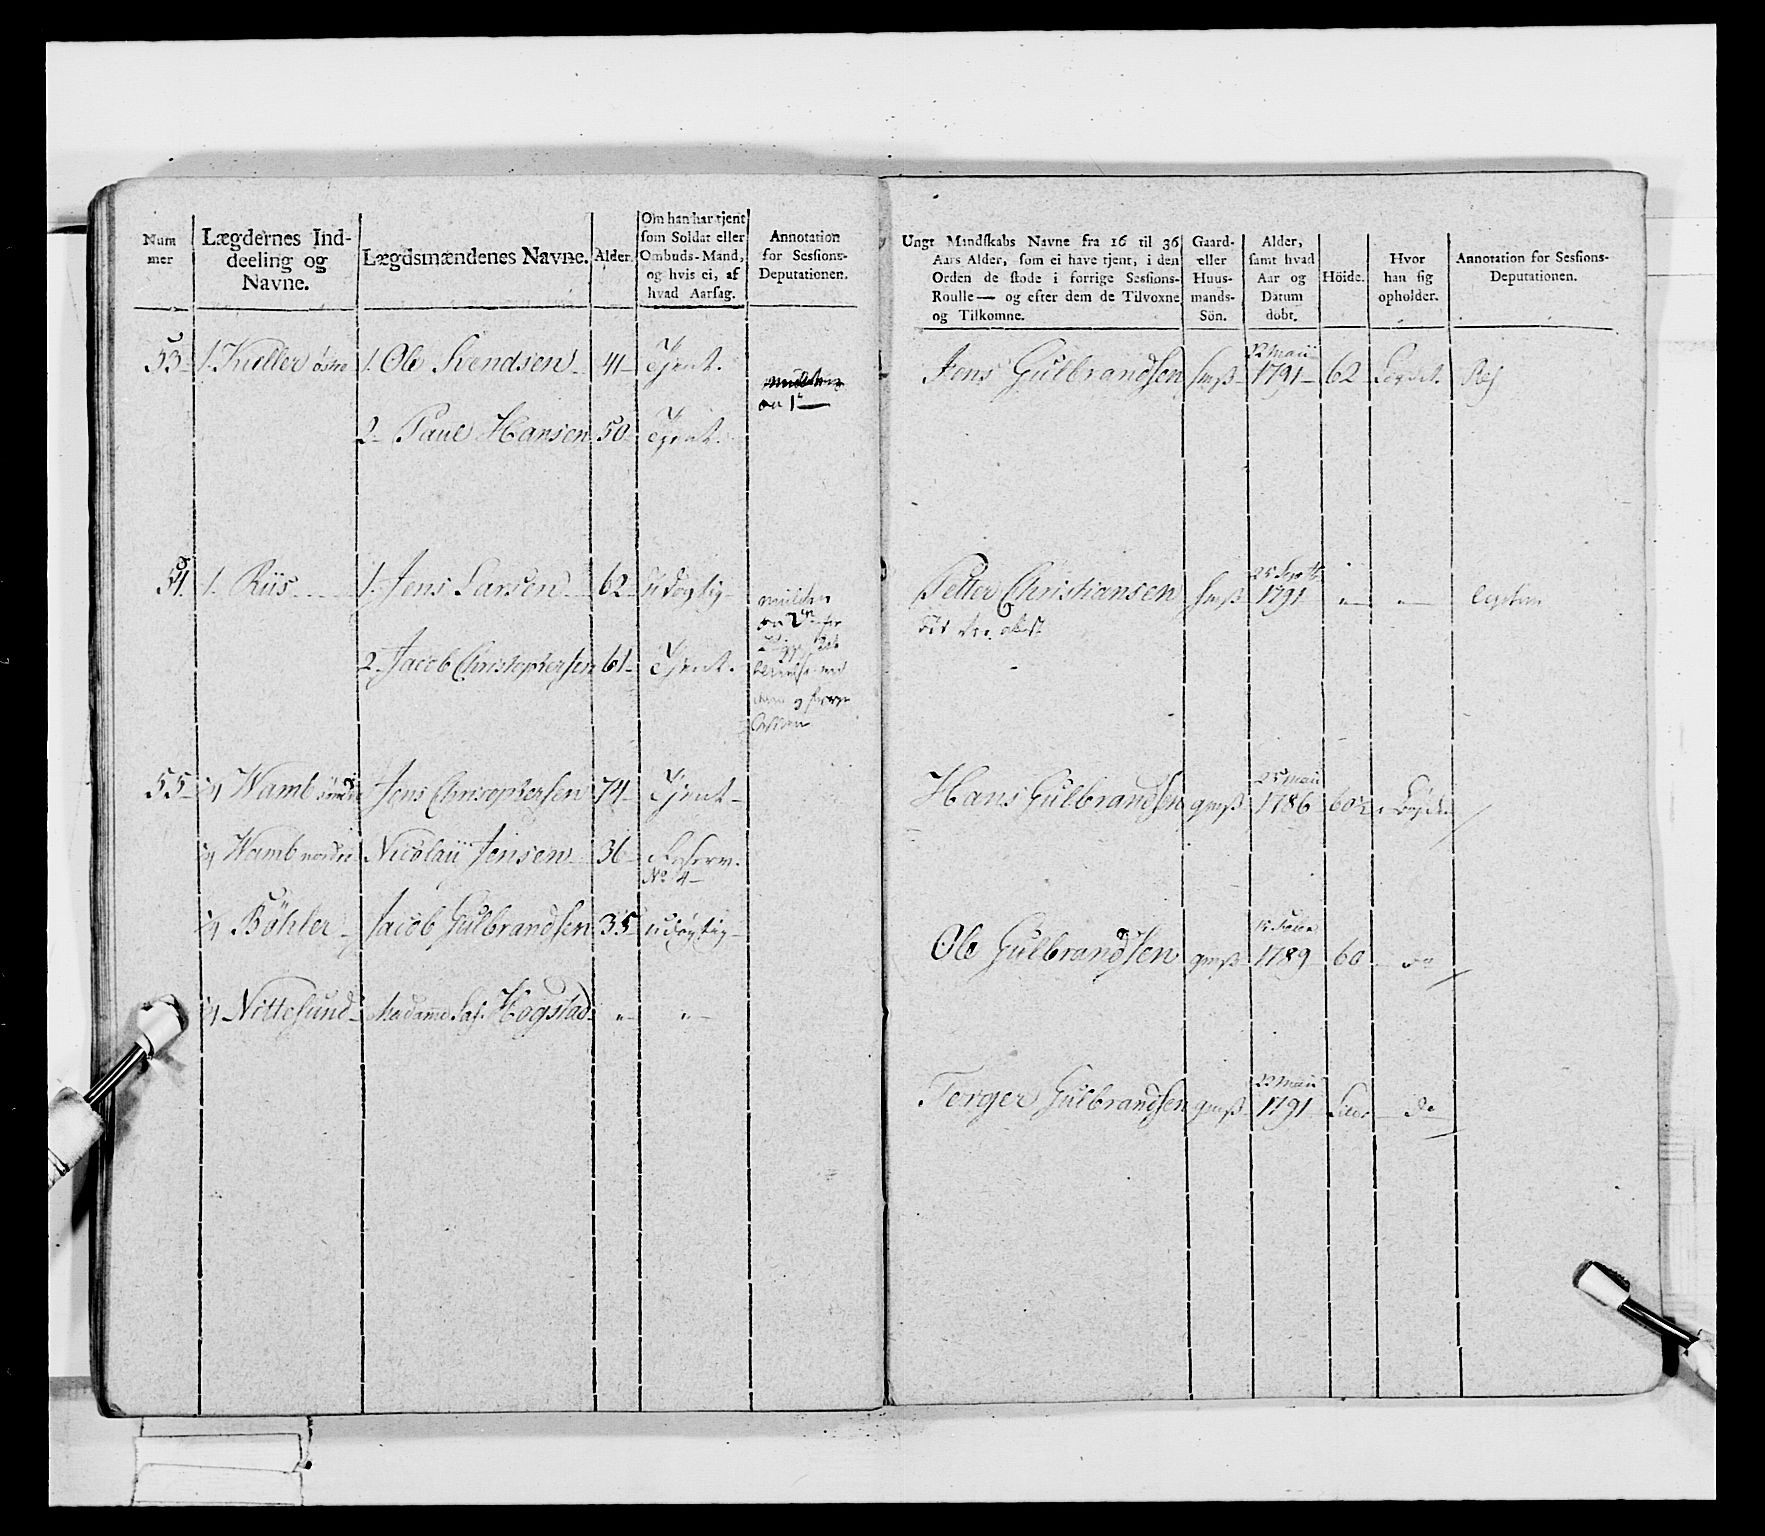 Num
mer
Lægdernes Ind-
deeling og
Navne.
Lægdsmændenes Navne.
Alder.
Om han har tjent
som Soldat eller
Ombuds-Mand,
og hvis ei, af
hvad Aarsag.
Annotation
for Sessions-
Deputationen.
53 1. Kieller østre 1. Ole Svendsen 41 Tjent.
2 Paul Hansen 50 Tjent.
54 1. Riis 1. Jens Larsen 62 udøgtig
2. Jacob Christophersen 61 Tjent.
55 Wamb søndre Jens Christophersen 74 Tjent
Wamb nordre Nicolaii Jensen 36
No 4
Böhler Jacob Gulbrandsen 35 udøgtig
Nittesund Madame Sal. Hogstad " "
Ungt Mandskabs Navne fra 16 til 36
Aars Alder, som ei have tjent, i den
Orden de stode i forrige Sessions-
Roulle — og efter dem de Tilvoxne
og Tilkomne.
Gaard-
eller
Huus-
mands-
Sön.
Alder,
samt hvad
Aar og
Datum
döbt.
Höide.
Hvor
han sig
opholder.
Annotation for Sessions-
Deputationen.
22 Maii
Jens Gulbrandsen 1791 62
25 Septr
Petter Christiansen 1791 " "
25 Maii
Hans Gulbrandsen 1786
Ole Gulbrandsen 1789 60 do
22 Maii
Terger Gulbrandsen 1791 do